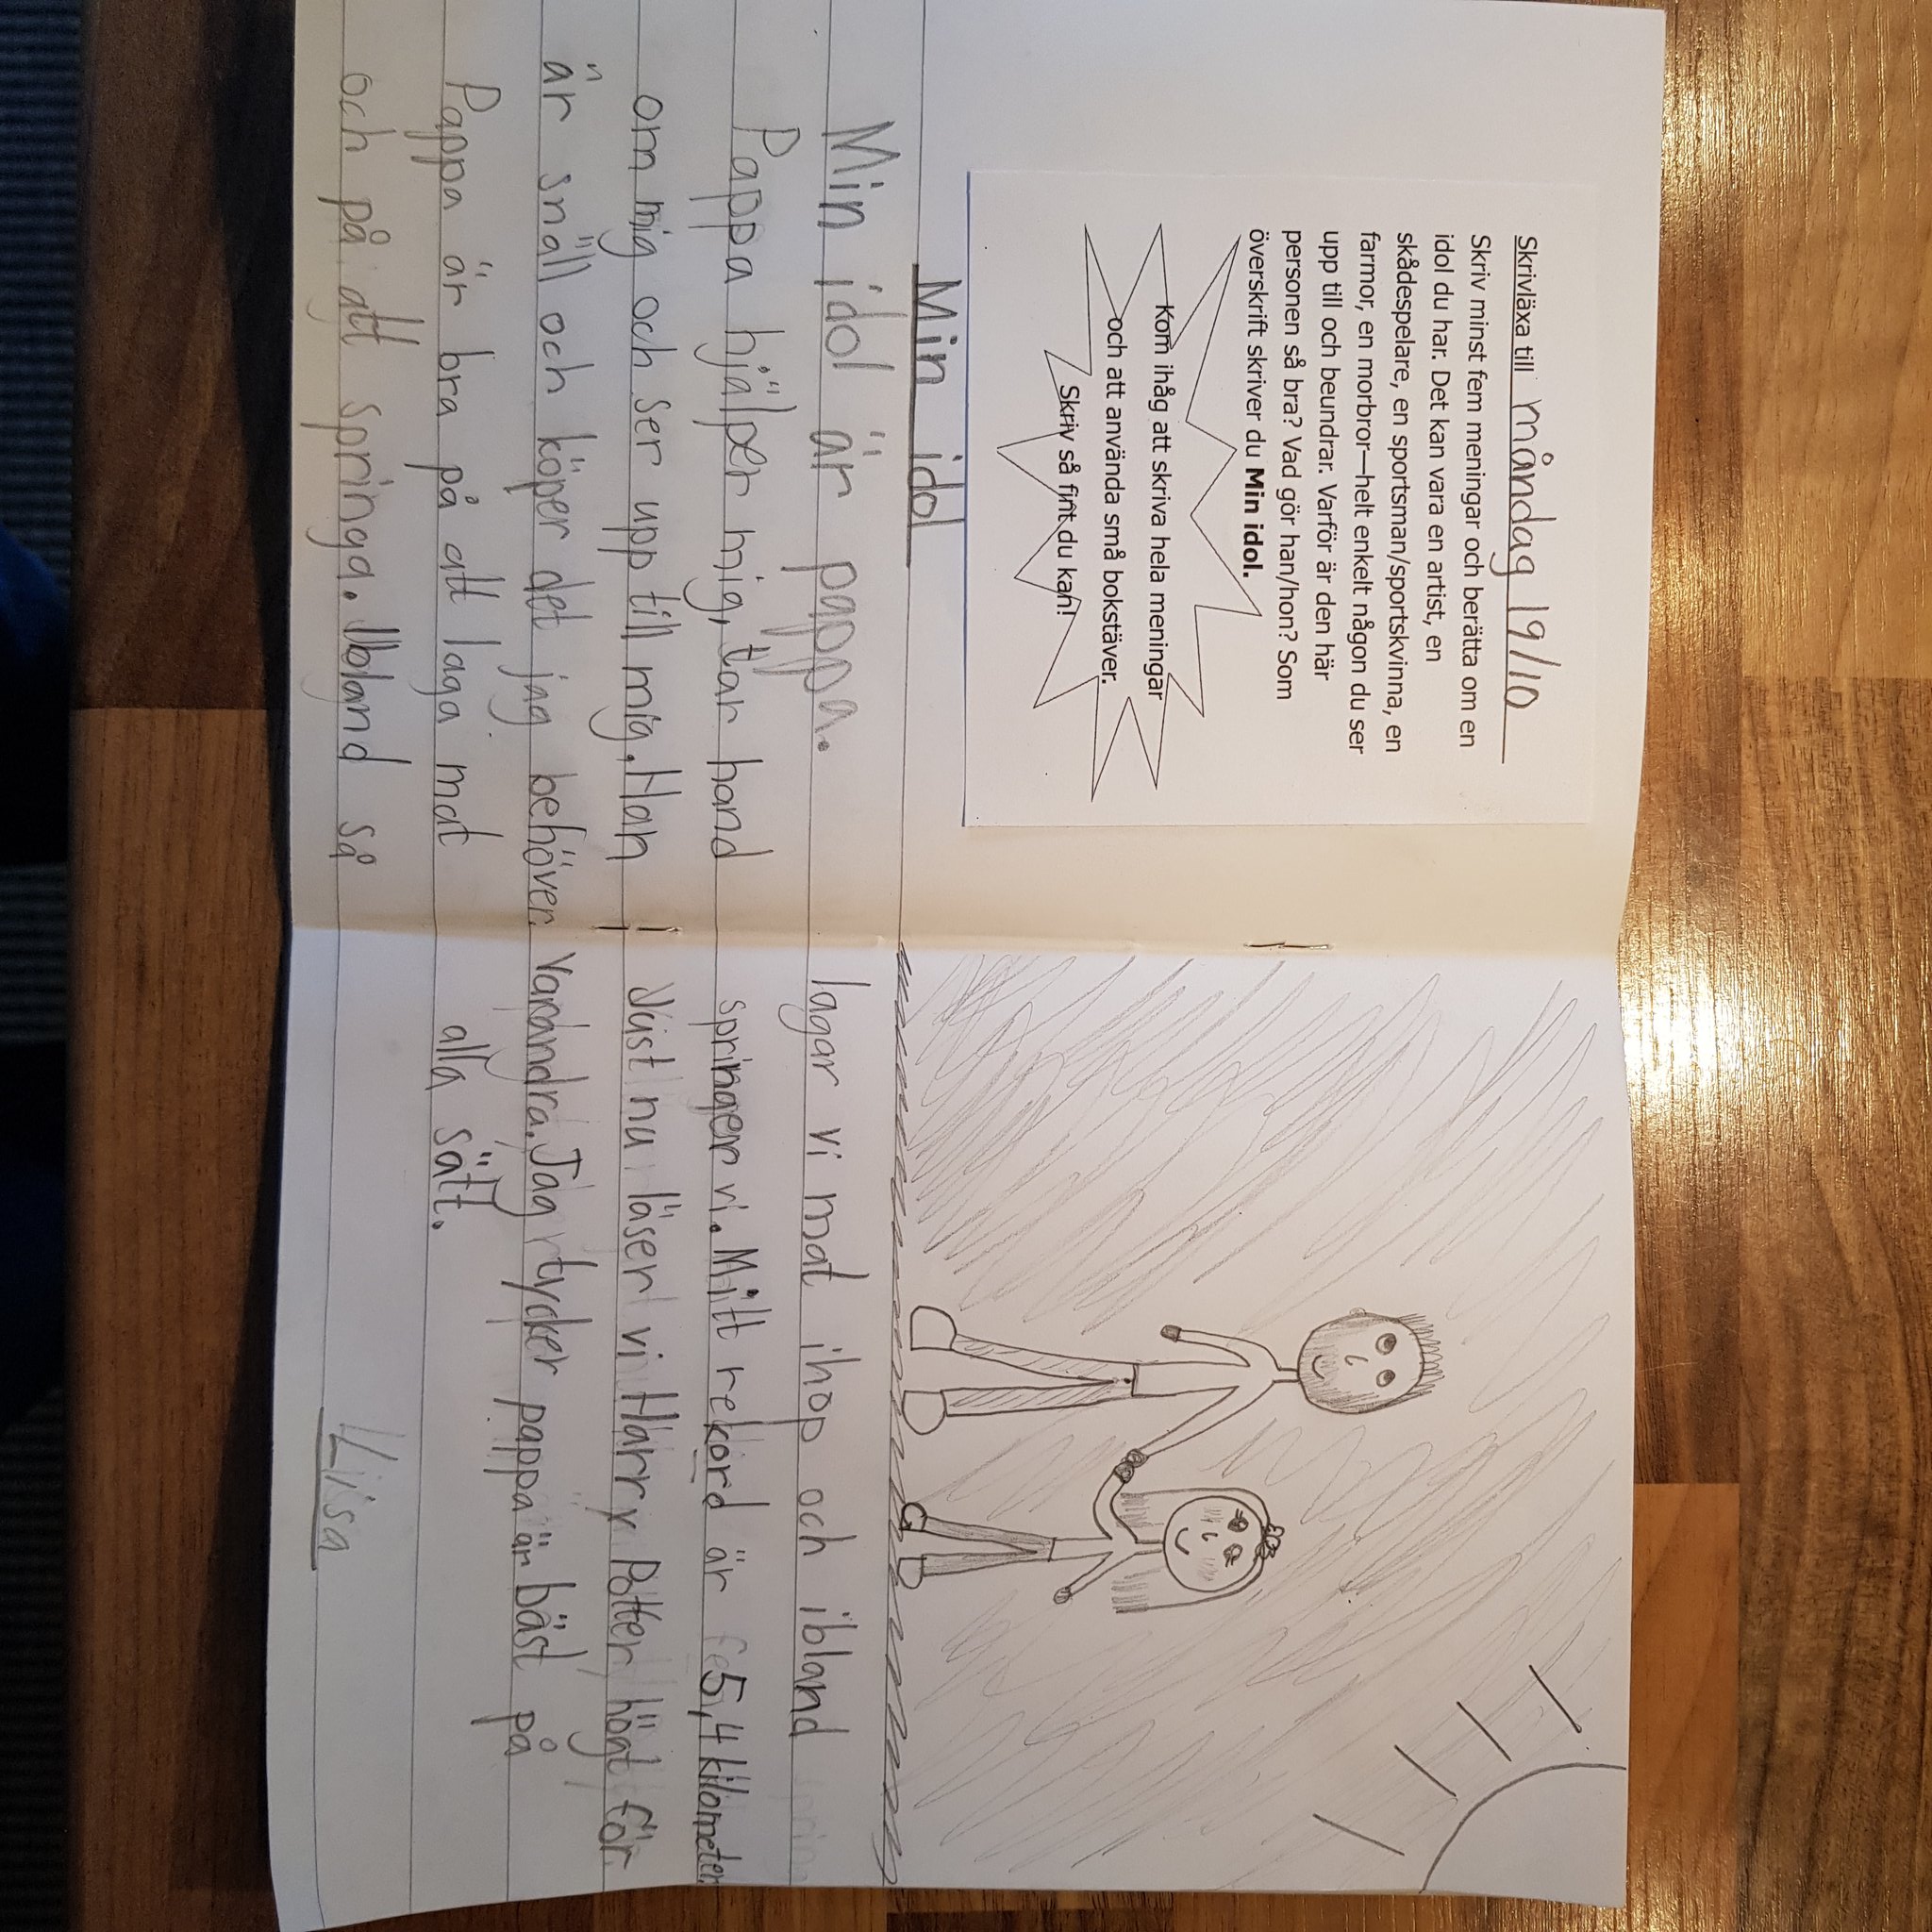 Skrivläxa till måndag 19/10
Skriv minst fem meningar och berätta om en
idol du har. Det kan vara en artist, en
skådespelare, en sportsman/sportskvinna, en
farmor, en morbror—helt enkelt någon du ser
upp till och beundrar. Varför är den här
personen så bra? Vad gör han/hon? Som
överskrift skriver du Min idol.
Kom ihåg att skriva hela meningar
och att använda små bokstäver.
Skriv så fint du kan!
Min idol
Min idol är pappa.
Pappa hjälper mig, tar hand
om mig och ser upp till mig. Han
är snäll och köper det jag behöver.
Pappa är bra på att laga mat
och på att springa. Ibland så
lagar vi mat ihop och ibland
springer vi. Mitt rekord är 5,4 kilometer.
Just nu läser vi Harry Potter högt för
varandra. Jag tycker pappa är bäst på
alla sätt.
/Lisa